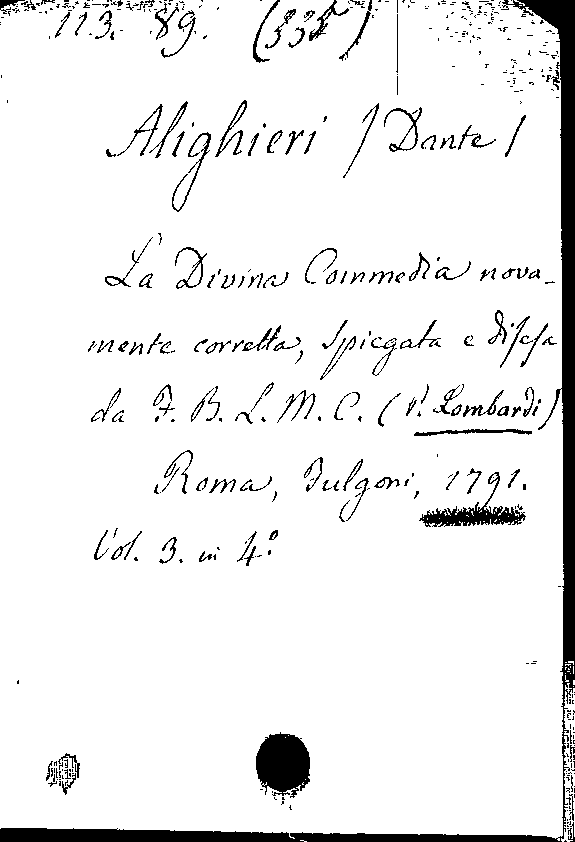 113. 89. (335)
Alighieri / Dante /
La Divina Commedia nova-
mente corretta, spiegata e difesa
da F. B. L. M. C. (P. Lombardi)
Roma, Fulgoni, 1791.
Vol. 3. in 4.º